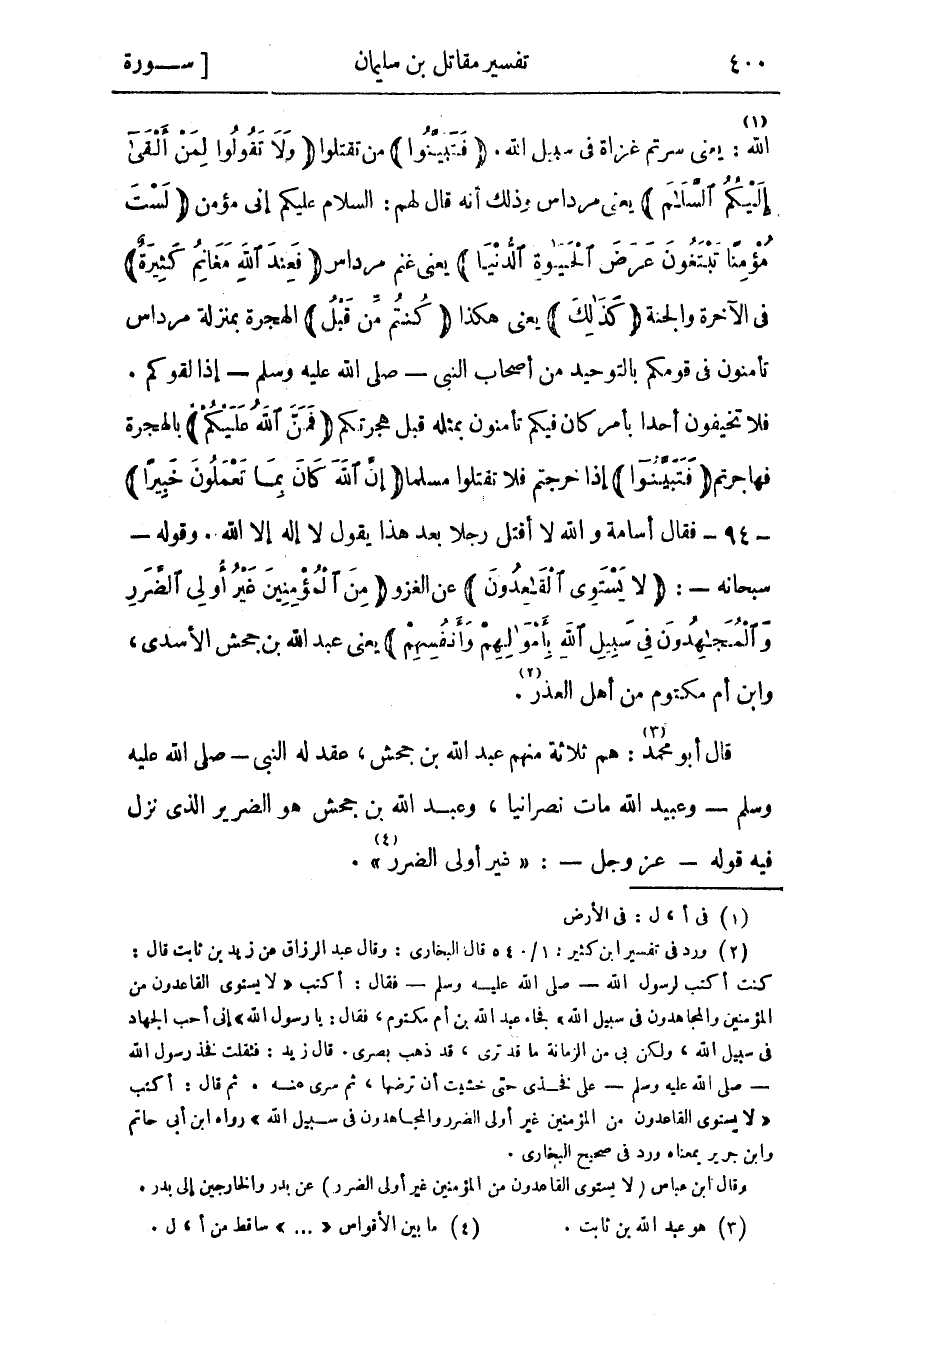 ٤٠٠ تفسير مقاتل بن سليمان [ ســـورة
الله (١) : يعنى سرتم غزاة فى سبيل الله . ﴿ فَتَبَيَّنُوا ﴾ من تقتلوا ﴿ وَلَا تَقُولُوا لِمَنْ أَلْقَىٰٓ
إِلَيْكُمُ ٱلسَّلَـٰمَ ﴾ يعنى مرداس وذلك أنه قال لهم : السلام عليكم إنى مؤمن ﴿ لَسْتَ
مُؤْمِنًا تَبْتَغُونَ عَرَضَ ٱلْحَيَوٰةِ ٱلدُّنْيَا ﴾ يعنى غنم مرداس ﴿ فَعِندَ ٱللَّهِ مَغَانِمُ كَثِيرَةٌ ﴾
فى الآخرة والجنة ﴿ كَذَٰلِكَ ﴾ يعنى هكذا ﴿ كُنتُم مِّن قَبْلُ ﴾ الهجرة بمنزلة مرداس
تأمنون فى قومكم بالتوحيد من أصحاب النبى — صلى الله عليه وسلم — إذا لقوكم .
فلا تخيفون أحدا بأمر كان فيكم تأمنون بمثله قبل هجرتكم ﴿ فَمَنَّ ٱللَّهُ عَلَيْكُمْ ﴾ بالهجرة
فهاجرتم ﴿ فَتَبَيَّنُوٓا ﴾ إذا خرجتم فلا تقتلوا مسلما ﴿ إِنَّ ٱللَّهَ كَانَ بِمَا تَعْمَلُونَ خَبِيرًا ﴾
— ٩٤ — فقال أسامة والله لا أقتل رجلا بعد هذا يقول لا إله إلا الله . وقوله —
سبحانه — : ﴿ لا يَسْتَوِى ٱلْقَـٰعِدُونَ ﴾ عن الغزو ﴿ مِنَ ٱلْمُؤْمِنِينَ غَيْرُ أُولِى ٱلضَّرَرِ
وَٱلْمُجَـٰهِدُونَ فِى سَبِيلِ ٱللَّهِ بِأَمْوَٰلِهِمْ وَأَنفُسِهِمْ ﴾ يعنى عبد الله بن جحش الأسدى ،
وابن أم مكتوم من أهل العذر (٢) .
قال أبو محمد (٣) : هم ثلاثة منهم عبد الله بن جحش ، عقد له النبى — صلى الله عليه
وسلم — وعبيد الله مات نصرانيا ، وعبـد الله بن جحش هو الضرير الذى نزل
فيه قوله — عز وجل — : « غير أولى الضرر (٤) » .
(١) فى أ ، ل : فى الأرض
(٢) ورد فى تفسير ابن كثير : ١/٥٤٠ قال البخارى : وقال عبد الرزاق عن زيد بن ثابت قال :
كنت أكتب لرسول الله — صلى الله عليه وسلم — فقال : أكتب « لا يستوى القاعدون من
المؤمنين والمجاهدون فى سبيل الله » فجاء عبد الله بن أم مكتوم ، فقال : يا رسول الله » إنى أحب الجهاد
فى سبيل الله ، ولكن بى من الزمانة ما قد ترى ، قد ذهب بصرى . قال زيد : فثقلت فخذ رسول الله
— صلى الله عليه وسلم — على فخذى حتى خشيت أن ترضها ، ثم سرى عنه . ثم قال : أكتب
« لا يستوى القاعدون من المؤمنين غير أولى الضرر والمجاهدون فى سبيل الله » رواه ابن أبى حاتم
وابن جرير بمعناه ورد فى صحيح البخارى .
وقال ابن عباس ( لا يستوى القاعدون من المؤمنين غير أولى الضرر ) عن بدر والخارجين إلى بدر .
(٣) هو عبد الله بن ثابت . (٤) ما بين الأقواس « ... » ساقط من أ ، ل .